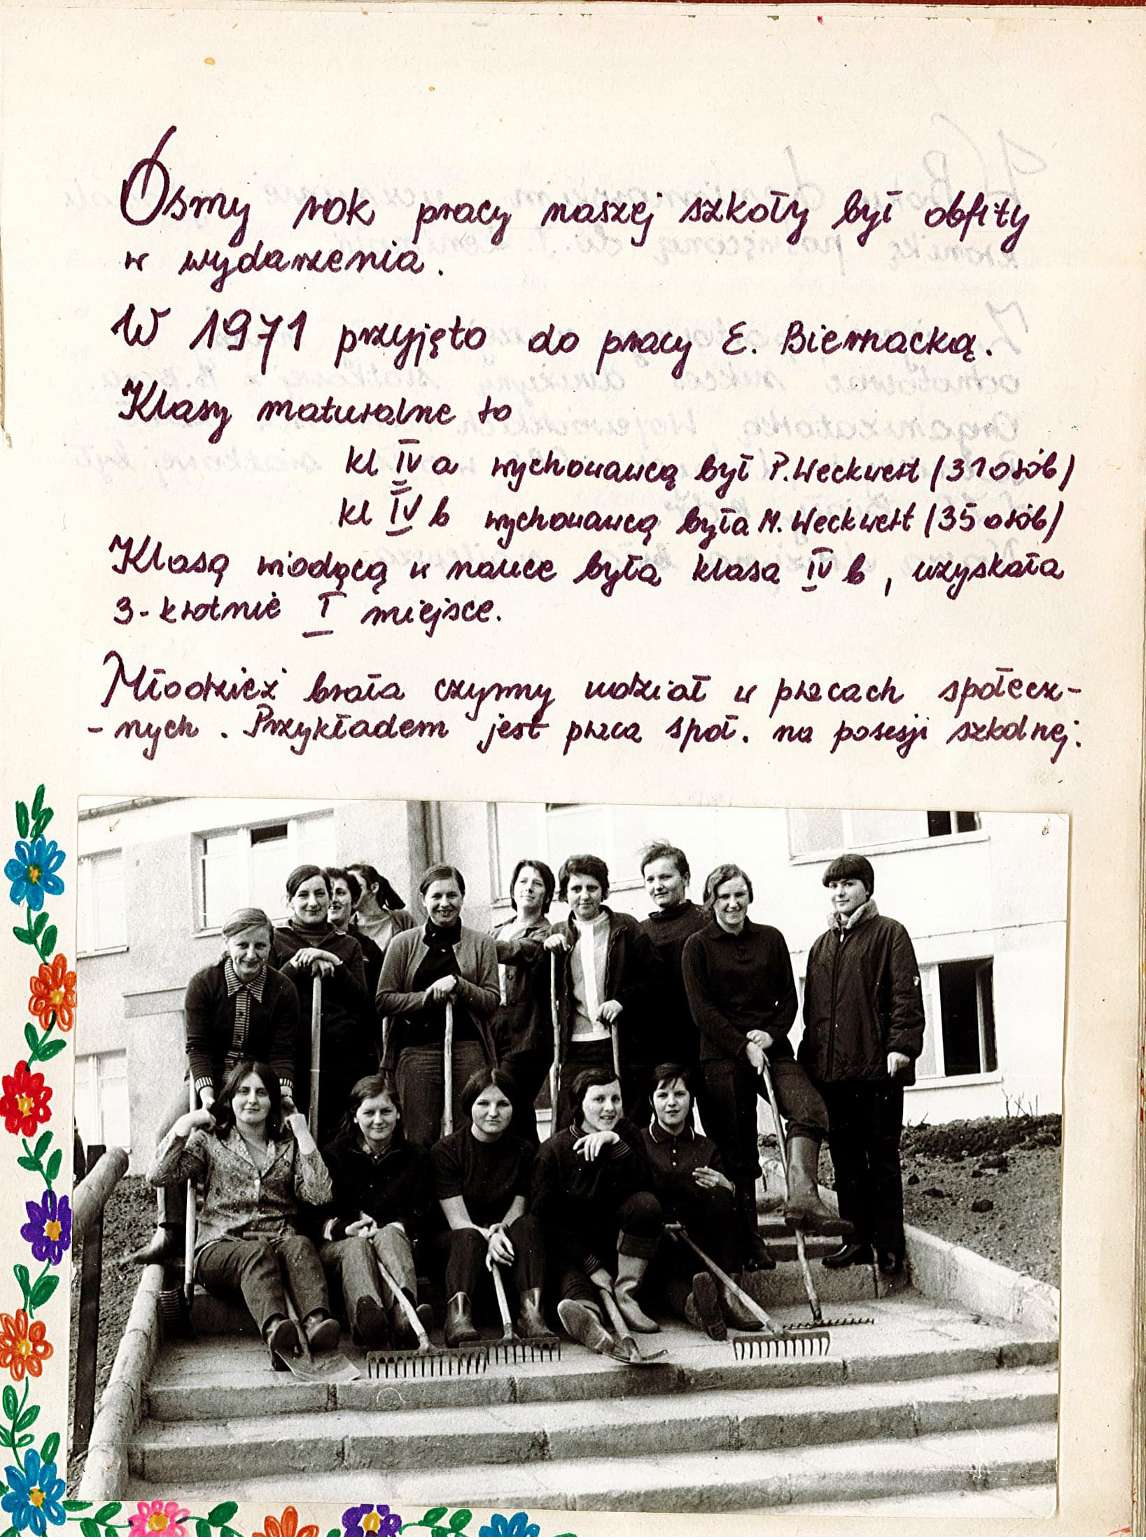 Ósmy rok pracy naszej szkoły był obfity
w wydarzenia.
W 1971 przyjęto do pracy E. Biernacką.
Klasy maturalne to
kl IV a wychowawcą był P. Weckwert (31 osób)
kl IV b wychowawcą była M. Weckwert (35 osób)
Klasą wiodącą w nauce była klasa IV b, uzyskała
3-krotnie I miejsce.
Młodzież brała czynny udział w pracach społecz-
-nych. Przykładem jest praca społ. na posesji szkolnej: